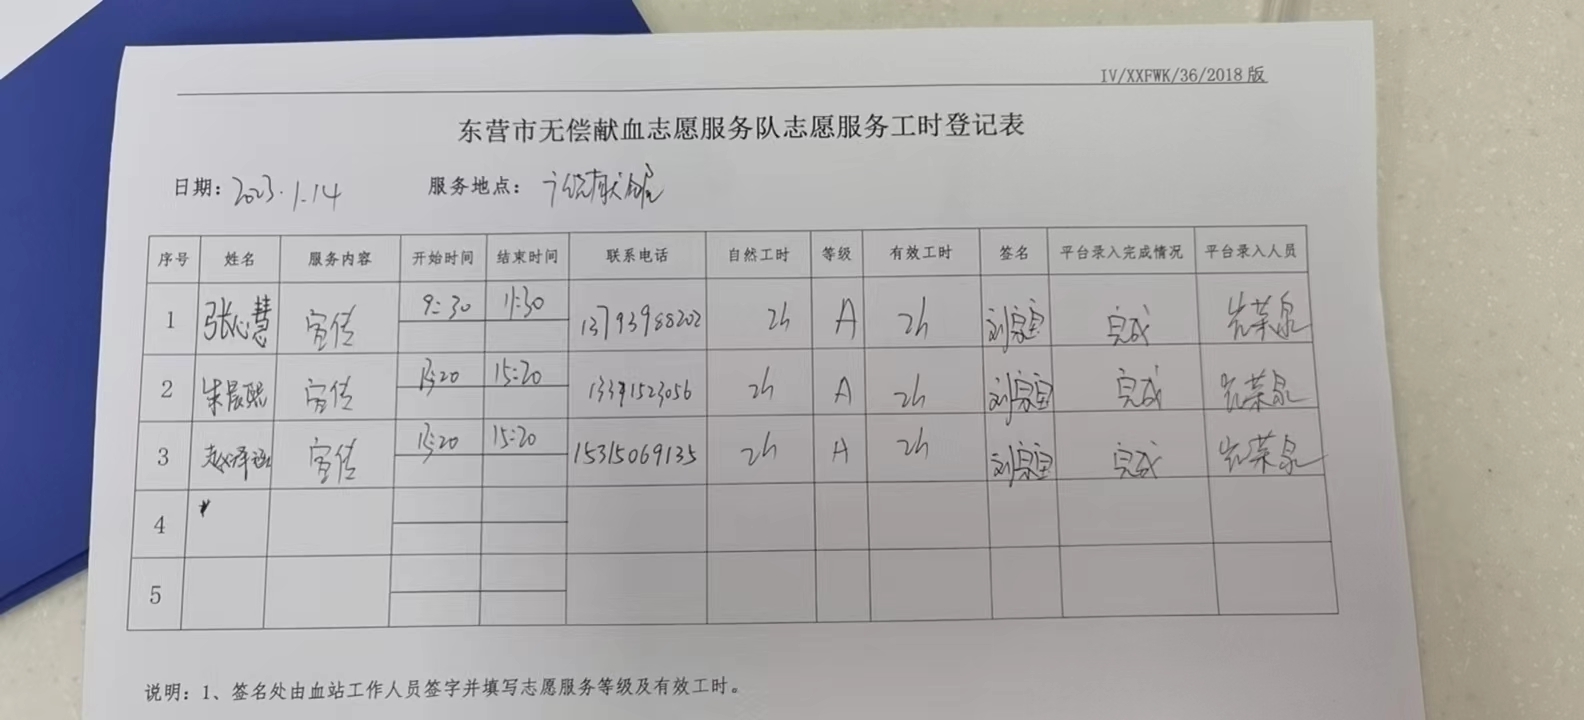 IV/XXFWK/36/2018版
东营市无偿献血志愿服务队志愿服务工时登记表
日期：2023.1.14 服务地点：
序号 姓名 服务内容 开始时间 结束时间 联系电话 自然工时 等级 有效工时 签名 平台录入完成情况 平台录入人员
1 张心慧 宣传 9:30 11:30 13793988202 2h A 2h 完成
2 朱晨熙 宣传 13:20 15:20 13391523056 2h A 2h 完成
3 赵泽涵 宣传 13:20 15:20 15315069135 2h A 2h 完成
4
5
说明：1、签名处由血站工作人员签字并填写志愿服务等级及有效工时。